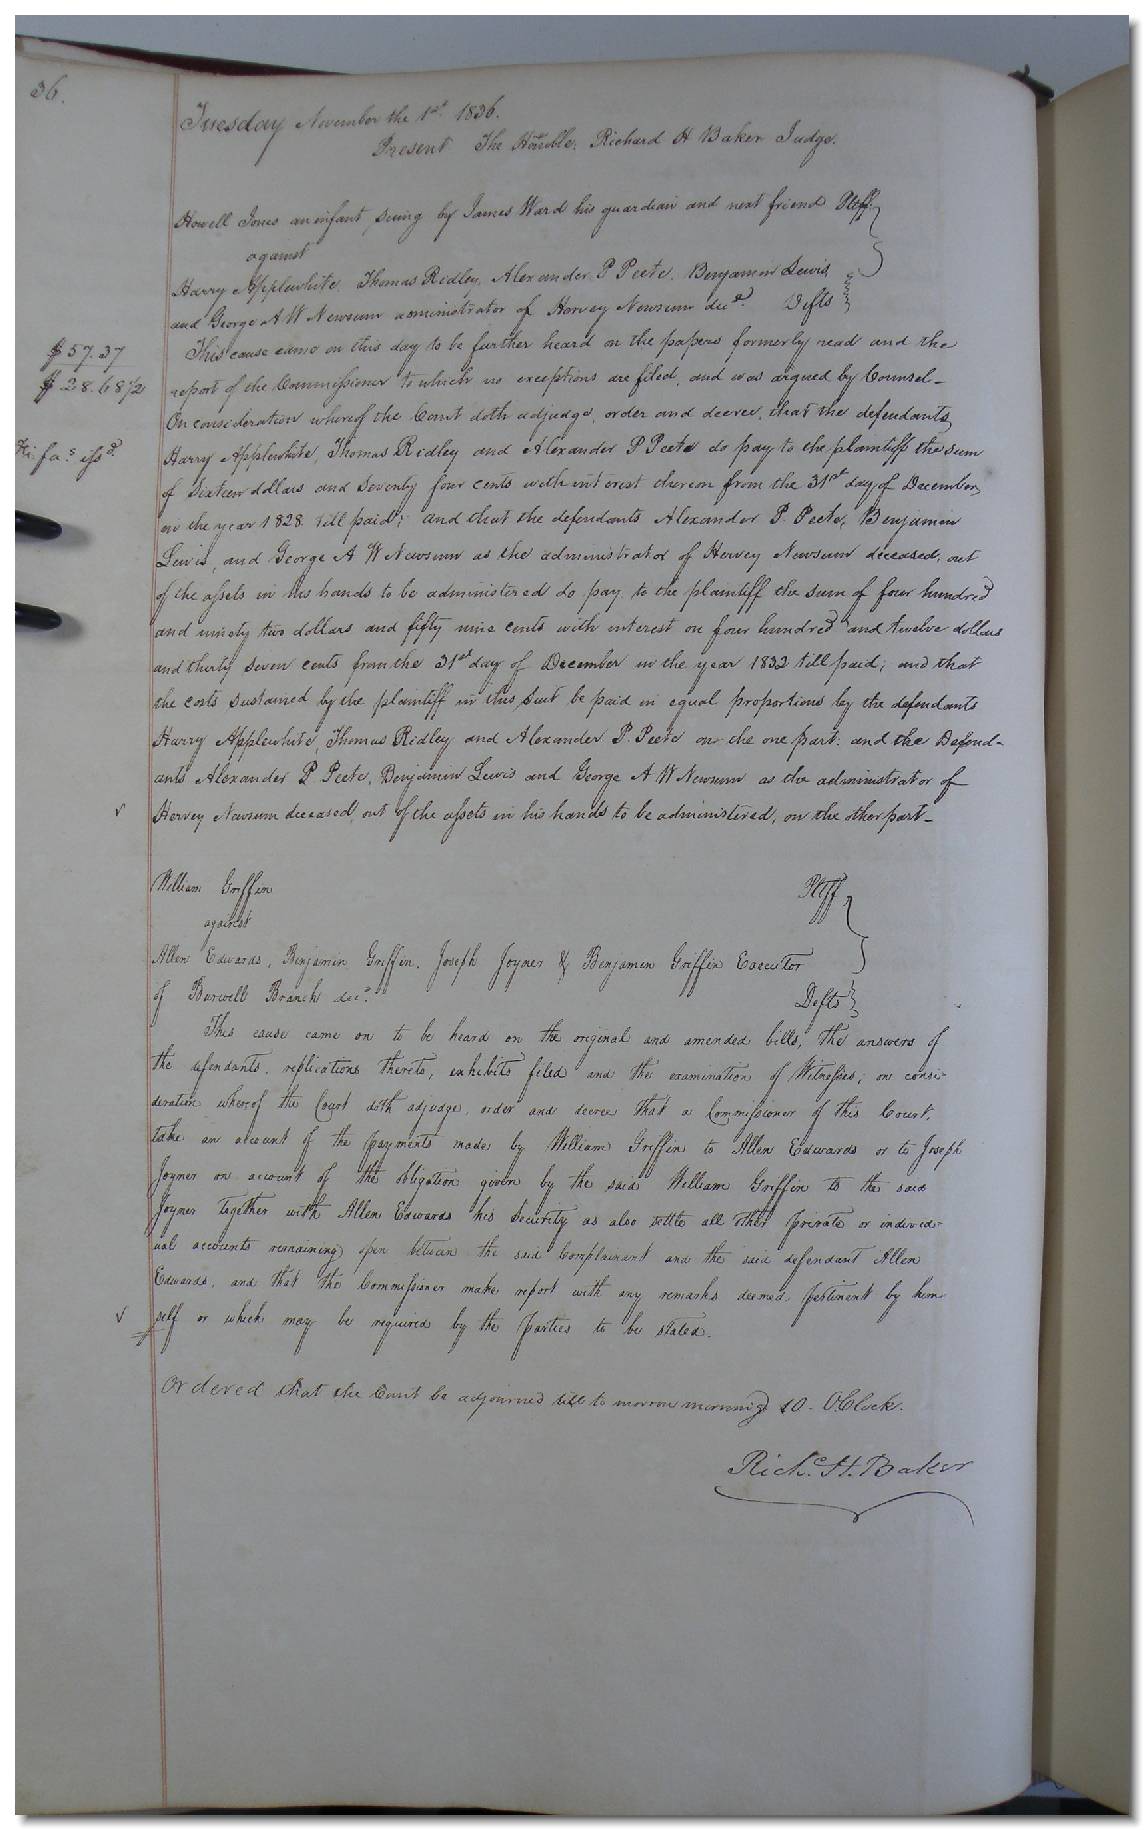 36.
Tuesday November the 1st 1836.
Present The Honble. Richard H Baker Judge.
Howell Jones an infant suing by James Ward his guardian and next friend Pltff.
against
Harry Applewhite, Thomas Ridley, Alexander P Peete, Benjamin Lewis,
and George A W Newsum administrator of Hervey Newsum decd. Defts
This cause came on this day to be further heard on the papers formerly read and the
$57.37
report of the Commissioner to which no exceptions are filed, and was argued by Counsel-
$28.68 1/2
On consideration whereof the Court doth adjudge, order and decree, that the defendants,
Harry Applewhite, Thomas Ridley and Alexander P Peete do pay to the plaintiff the sum
Fi: fas. issd.
of Sixteen dollars and Seventy four cents with interest thereon from the 31st day of December,
in the year 1828 till paid; and that the defendants Alexander P. Peete, Benjamin
Lewis, and George A W Newsum as the administrator of Hervey Newsum deceased, out
of the assets in his hands to be administered do pay to the plaintiff the sum of four hundred
and ninety two dollars and fifty nine cents with interest on four hundred and twelve dollars
and thirty seven cents from the 31st day of December in the year 1832 till paid; and that
the costs sustained by the plaintiff in this suit be paid in equal proportions by the defendants
Harry Applewhite, Thomas Ridley and Alexander P. Peete on the one part: and the Defend-
ants Alexander P Peete, Benjamin Lewis and George A W Newsum as the administrator of
Hervey Newsum deceased, out of the assets in his hands to be administered, on the other part-
William Griffin Pltff
against
Allen Edwards, Benjamin Griffin, Joseph Joyner & Benjamin Griffin Executor
of Burwell Branch decd. Defts
This cause came on to be heard on the original and amended bills, the answers of
the defendants, replications thereto, exhibits filed and the examination of Witnesses; on consi-
deration whereof the Court doth adjudge, order and decree that a Commissioner of this Court,
take an account of the payments made by William Griffin to Allen Edwards or to Joseph
Joyner on account of the obligation given by the said William Griffin to the said
Joyner together with Allen Edwards his Security as also settle all other private or individ-
ual accounts remaining open between the said Complainant and the said defendant Allen
Edwards, and that the Commissioner make report with any remarks deemed pertinent by him-
self or which may be required by the parties to be stated.
Ordered that the Court be adjourned till to morrow morning 10 - OClock.
Richd. H. Baker